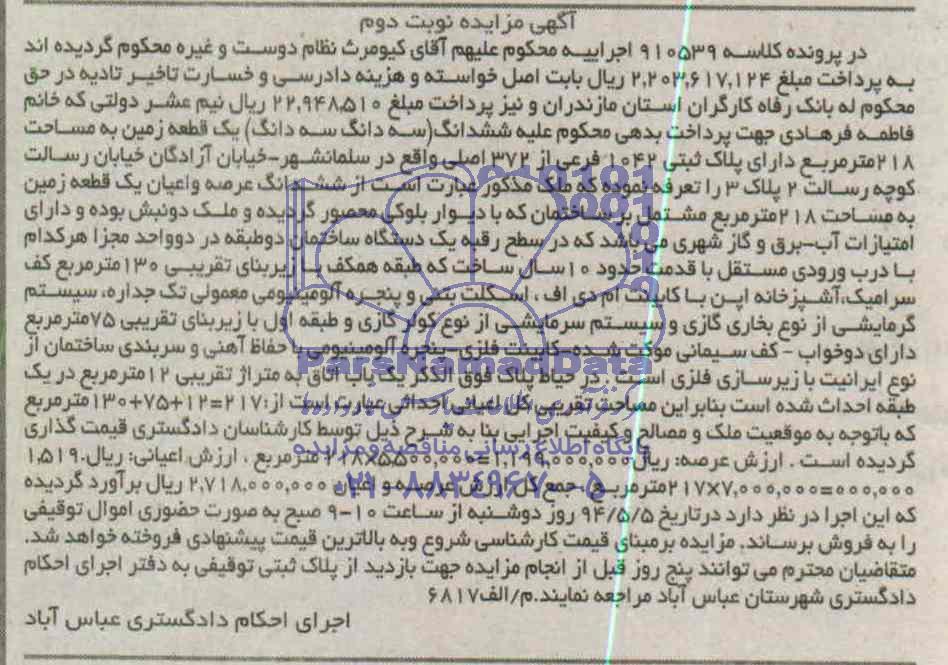 آگهی مزایده نوبت دوم
در پرونده کلاسه ۹۱۰۵۳۹ اجراییه محکوم علیهم آقای کیومرث نظام دوست و غیره محکوم گردیده اند
به پرداخت مبلغ ۲,۲۰۳,۶۱۷,۱۲۴ ریال بابت اصل خواسته و هزینه دادرسی و خسارت تاخیر تادیه در حق
محکوم له بانک رفاه کارگران استان مازندران و نیز پرداخت مبلغ ۲۲,۹۴۸,۵۱۰ ریال نیم عشر دولتی که خانم
فاطمه فرهادی جهت پرداخت بدهی محکوم علیه ششدانگ(سه دانگ سه دانگ) یک قطعه زمین به مساحت
۲۱۸مترمربع دارای پلاک ثبتی ۱۰۴۲ فرعی از ۳۷۲ اصلی واقع در سلمانشهر-خیابان آزادگان خیابان رسالت
کوچه رسالت ۲ پلاک ۳ را تعرفه نموده که ملک مذکور عبارت است از ششدانگ عرصه واعیان یک قطعه زمین
به مساحت ۲۱۸مترمربع مشتمل بر ساختمان که با دیوار بلوکی محصور گردیده و ملک دونبش بوده و دارای
امتیازات آب-برق و گاز شهری می باشد که در سطح رقبه یک دستگاه ساختمان دوطبقه در دوواحد مجزا هرکدام
با درب ورودی مستقل با قدمت حدود ۱۰سال ساخت که طبقه همکف با زیربنای تقریبی ۱۳۰مترمربع کف
سرامیک،آشپزخانه اپن با کابینت ام دی اف ، اسکلت بتنی و پنجره آلومینیومی معمولی تک جداره، سیستم
گرمایشی از نوع بخاری گازی و سیستم سرمایشی از نوع کولر گازی و طبقه اول با زیربنای تقریبی ۷۵مترمربع
دارای دوخواب - کف سیمانی موکت شده-کابینت فلزی-پنجره آلومینیومی با حفاظ آهنی و سربندی ساختمان از
نوع ایرانیت با زیرسازی فلزی است . در حیاط پلاک فوق الذکر یک باب اتاق به متراژ تقریبی ۱۲مترمربع در یک
طبقه احداث شده است بنابراین مساحت تقریبی کل اعیانی احداثی عبارت است از:۲۱۷=۱۲+۷۵+۱۳۰مترمربع
که باتوجه به موقعیت ملک و مصالح و کیفیت اجرایی بنا به شرح ذیل توسط کارشناسان دادگستری قیمت گذاری
گردیده است . ارزش عرصه: ریال ۱,۱۹۹,۰۰۰,۰۰۰=۲۱۸×۵,۵۰۰,۰۰۰ مترمربع ، ارزش اعیانی: ریال.۱,۵۱۹
۲۱۷×۷,۰۰۰,۰۰۰=۰۰۰,۰۰۰مترمربع جمع کل ارزش عرصه و اعیان ۲,۷۱۸,۰۰۰,۰۰۰ ریال برآورد گردیده
که این اجرا در نظر دارد درتاریخ ۹۴/۵/۵ روز دوشنبه از ساعت ۱۰-۹ صبح به صورت حضوری اموال توقیفی
را به فروش برساند. مزایده برمبنای قیمت کارشناسی شروع وبه بالاترین قیمت پیشنهادی فروخته خواهد شد.
متقاضیان محترم می توانند پنج روز قبل از انجام مزایده جهت بازدید از پلاک ثبتی توقیفی به دفتر اجرای احکام
دادگستری شهرستان عباس آباد مراجعه نمایند.م/الف۶۸۱۷
اجرای احکام دادگستری عباس آباد
ParsNamadData
پایگاه اطلاع رسانی مناقصه و مزایده
۰۲۱-۸۸۳۴۹۶۷۰-۵